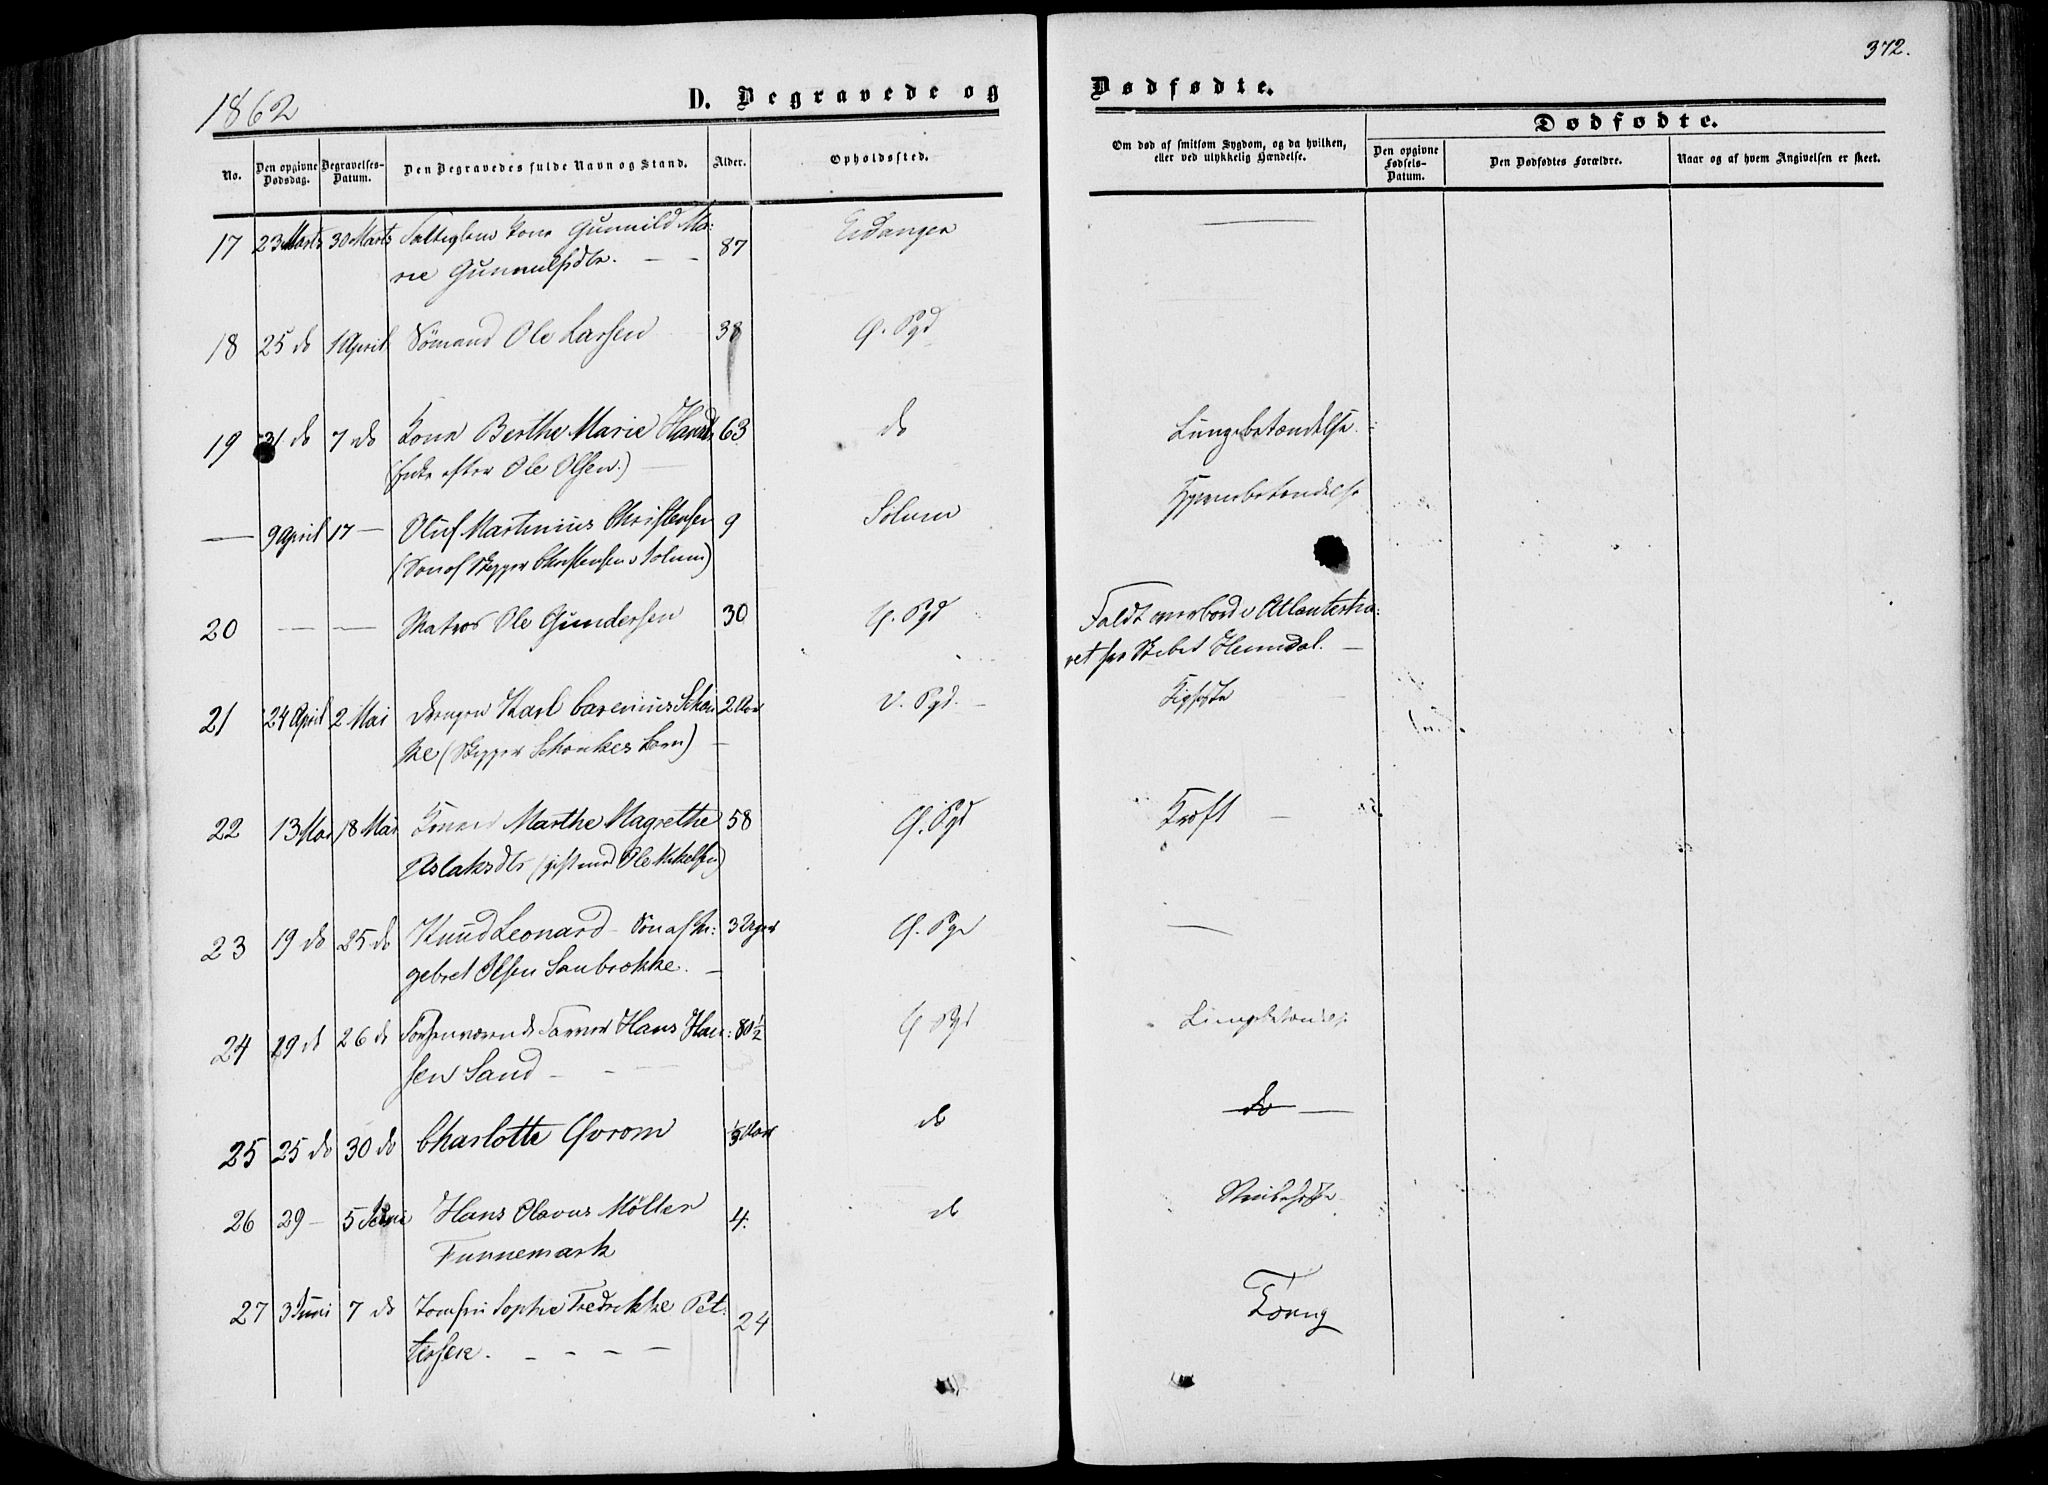 372.
1862
D. Begravede og Dødfødte.
Dødfødte.
No.
Den opgivne Dødsdag.
Begravelses-Datum.
Den Begravedes fulde Navn og Stand.
Alder.
Opholdssted.
Om død af smitsom Sygdom, og da hvilken, eller ved ulykkelig Hændelse.
Den opgivne Fødsels-Datum.
Den Dødfødtes Forældre.
Naar og af hvem Angivelsen er skeet.
17 23 Marts 30 Marts Fattiglem Kone Gunnild Ma: 87 Eidanger —
rie Gunnulfsdtr. — —
18 25 do 1 April Sømand Ole Larsen 38 Ø. Pgd
19 31 do 7 do Kone Berthe Marie 63 do Lungebetændelse.
(Enke efter Ole Olsen.) —
— 9 April 17 — Oluf Martinius Christensen 9 Solum
(Søn af Skipper Christensen Solum)
20 — — Matros Ole Gundersen 30 Ø. Pgd Faldt overbord i Atlanterha:
vet fra Skibet Heimdal. —
21 24 April 2 Mai Drengen Karl 2 Aar V. Pgd. —
ke (Skipper Schankes Barn) —
22 13 Mai 18 Mai Konen Marthe Magrethe 58 Ø. Pgd Kræft —
Aslaksdtr (gift med Ole Mikkelsen)
23 19 do 25 do Knud Leonard — Søn af In: 3 Uger Ø. Pgd —
gebret Olsen Saubrække. —
24 19 d 26 do Forhenværende Farver Hans Han: 80 1/2 Ø. Pgd Lungebetændelse
sen Sand — — —
25 25 do 30 do Charlotte Qvrom Aar do do —
26 29 — 5 Juni Hans Olavus Møller 4. do
Funnemark
27 3 Juni 7 do Jomfru Sophie Fredrikke Pet: 24 Tæring
tersen. — — — —